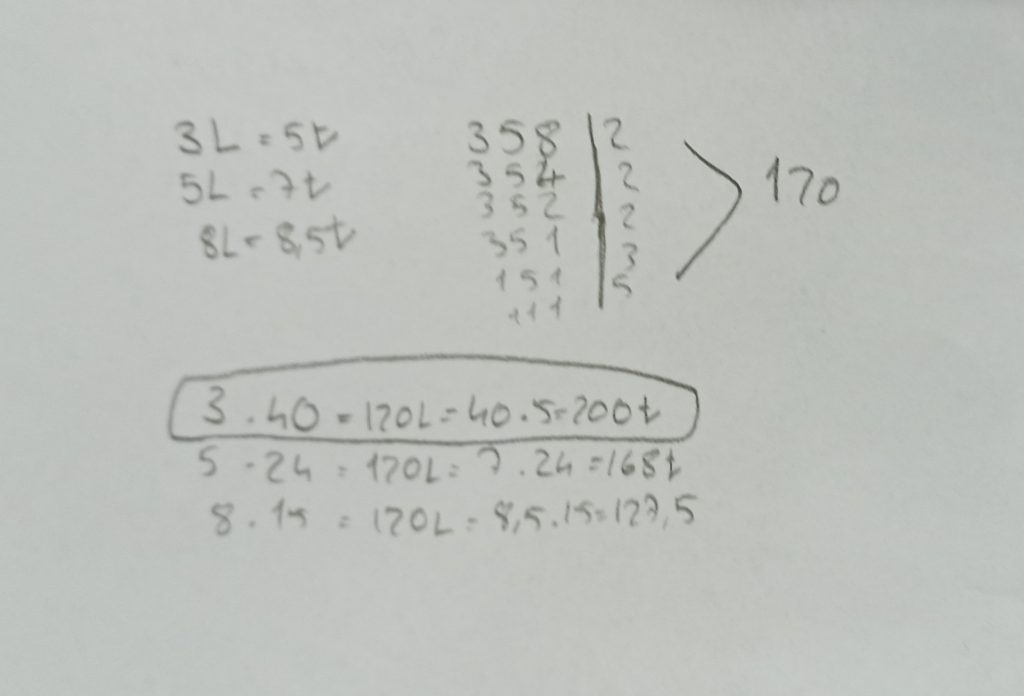 3L = 5t
5L = 7t
8L = 8,5t
3 5 8 | 2
3 5 4 | 2
3 5 2 | 2
3 5 1 | 3
1 5 1 | 5
1 1 1
120
3 . 40 = 120L = 40 . 5 = 200t
5 . 24 = 120L = 7 . 24 = 168t
8 . 15 = 120L = 8,5 . 15 = 127,5